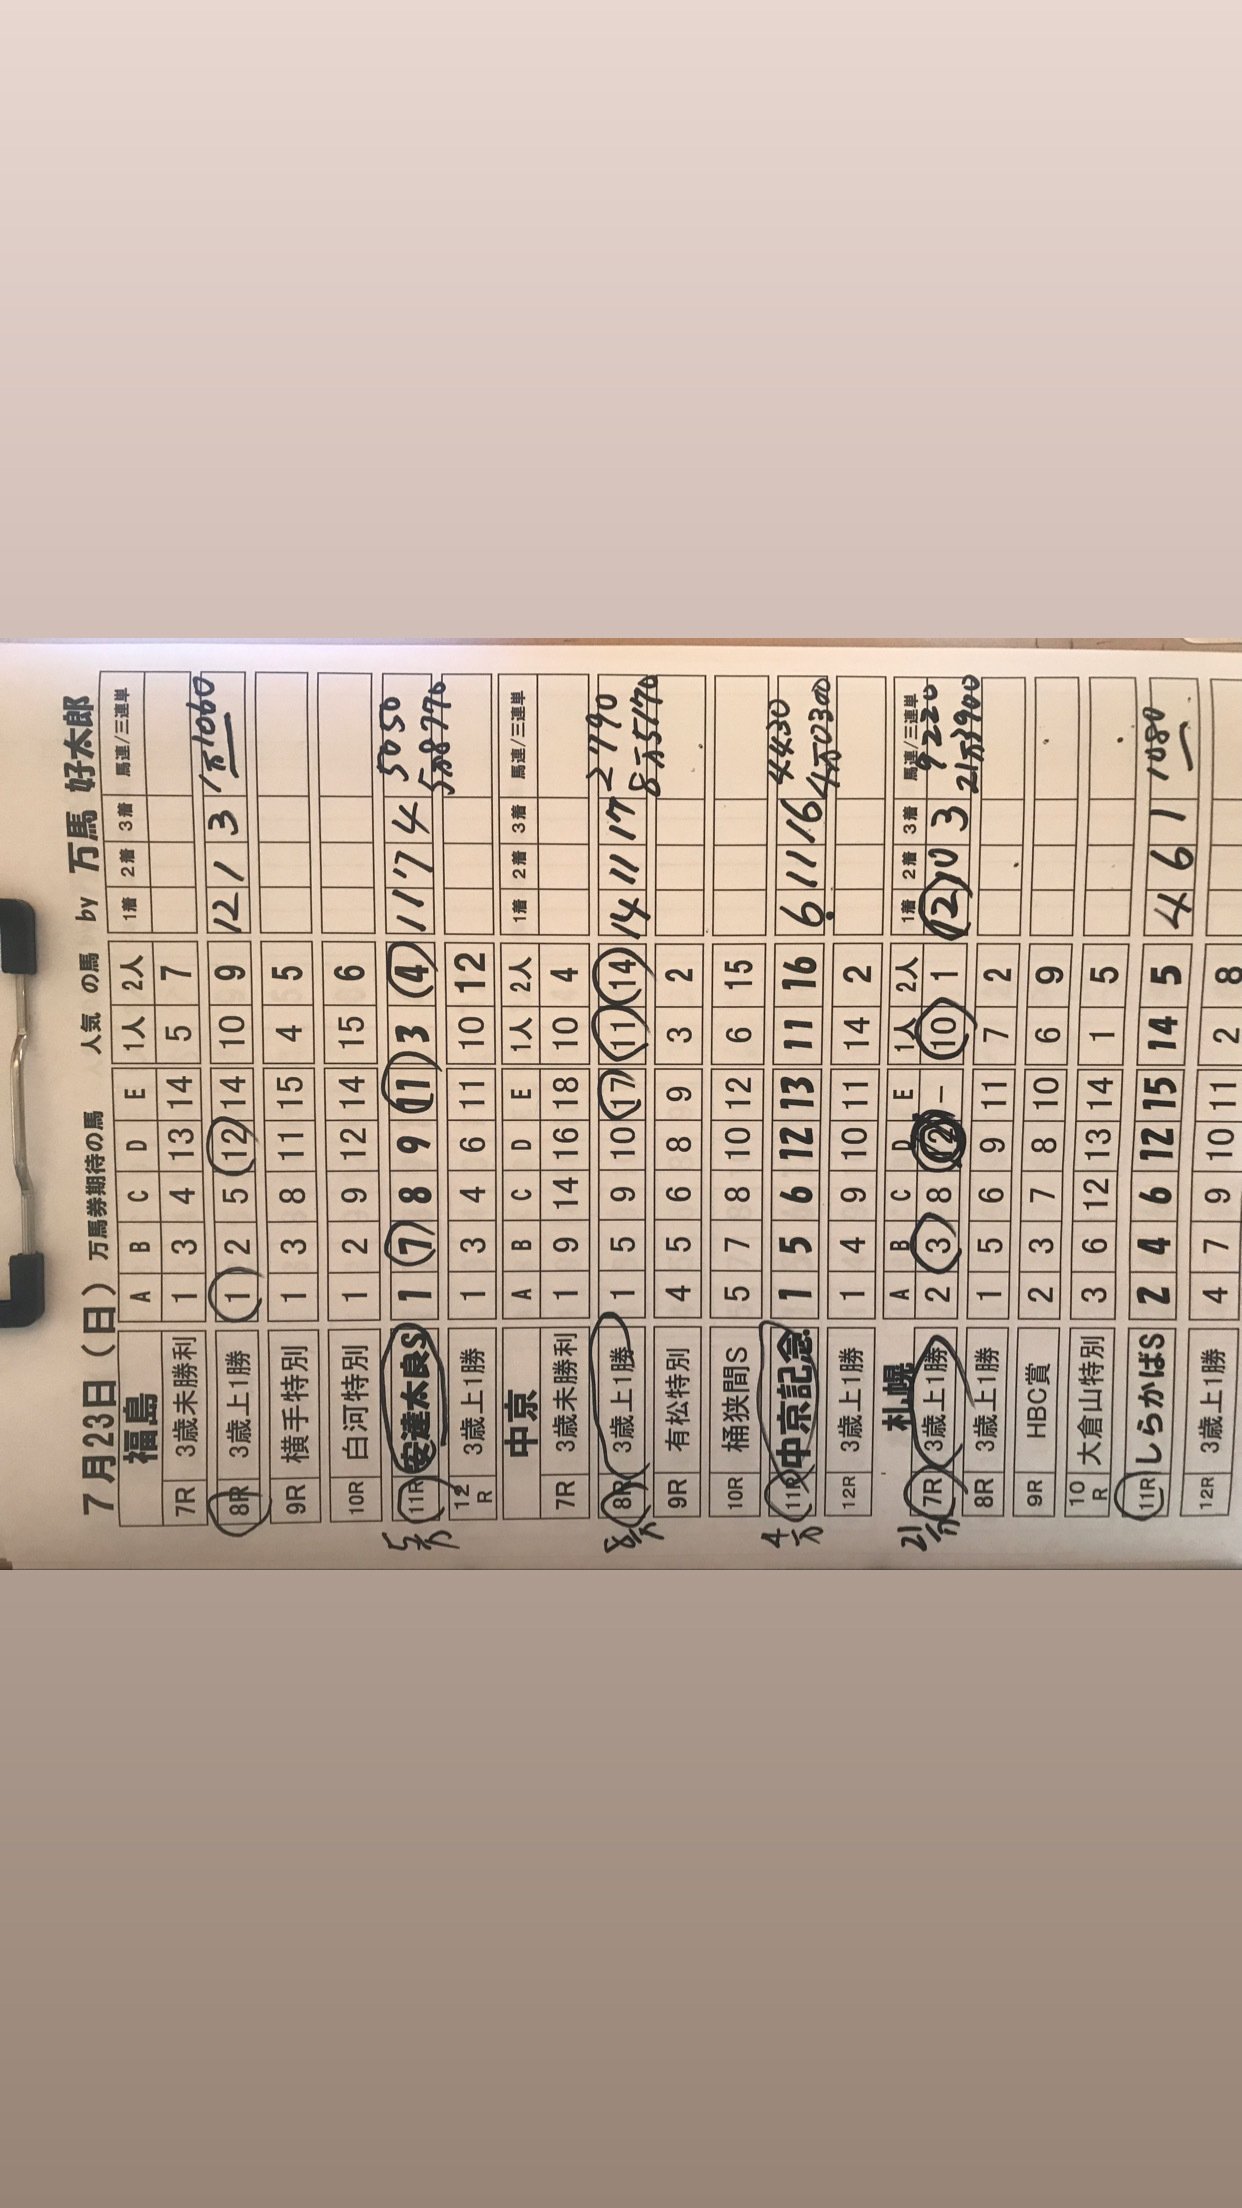 7月23日（日） 万馬券期待の馬 人気 の馬 by 万馬 好太郎
福島 A B C D E 1人 2人 1着 2着 3着 馬連/三連単
7R 3歳未勝利 1 3 4 13 14 5 7
8R 3歳上1勝 1 2 5 12 14 10 9 12 1 3 1万1060
9R 横手特別 1 3 8 11 15 4 5
10R 白河特別 1 2 9 12 14 15 6
5万 11R 安達太良S 1 7 8 9 11 3 4 11 7 4 5050
5万8770
12R 3歳上1勝 1 3 4 6 11 10 12
中京 A B C D E 1人 2人 1着 2着 3着 馬連/三連単
7R 3歳未勝利 1 9 14 16 18 10 4
8万 8R 3歳上1勝 1 5 9 10 17 11 14 14 11 17 2790
8万5170
9R 有松特別 4 5 6 8 9 3 2
10R 桶狭間S 5 7 8 10 12 6 15
4万 11R 中京記念 1 5 6 12 13 11 16 6 11 16 4430
4万0300
12R 3歳上1勝 1 4 9 10 11 14 2
札幌 A B C D E 1人 2人 1着 2着 3着 馬連/三連単
21万 7R 3歳上1勝 2 3 8 12 - 10 1 12 10 3 9220
21万3900
8R 3歳上1勝 1 5 6 9 11 7 2
9R HBC賞 2 3 7 8 10 6 9
10R 大倉山特別 3 6 12 13 14 1 5
11R しらかばS 2 4 6 12 15 14 5 4 6 1 1080
12R 3歳上1勝 4 7 9 10 11 2 8